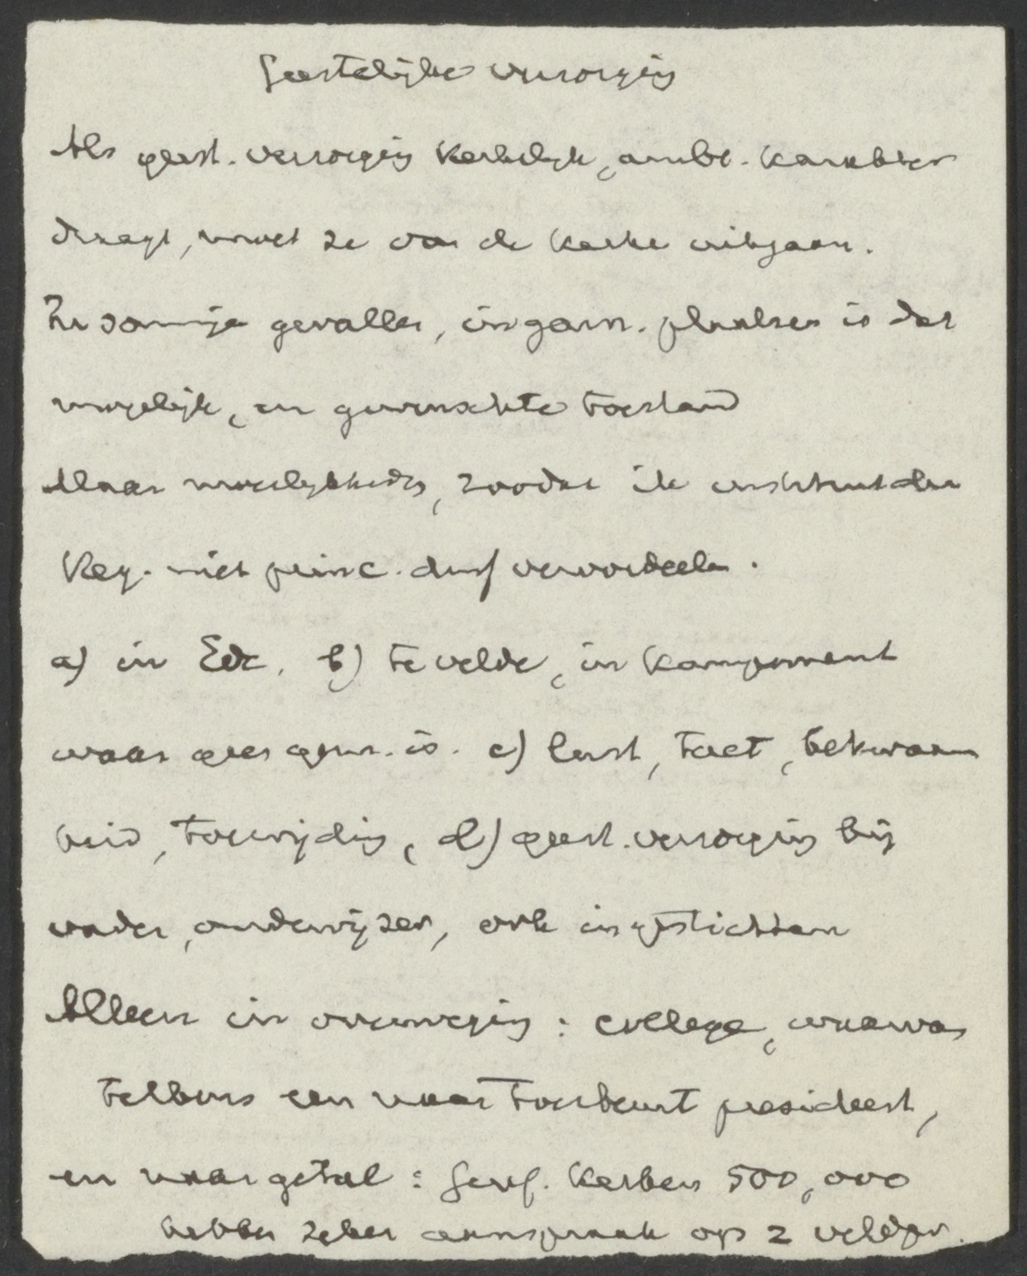 Geestelijke verzorging
Als geest. verzorging kerkelijk, ambt. karakter
draagt, moet ze van de kerke uitgaan.
In sommige gevallen, in garn. plaatsen is dat
mogelijk, en gewenschte toestand
Maar moeilijkheden, zoodat ik instituut der
Reg. niet princ. durf veroordeelen.
a) in Ede, b) te velde, in kampement
waar geen garn. is. c) lust, tact, bekwaam
heid, toewijding, d) geest. verzorging bij
vader, onderwijzer, ook in gestichten
Alleen in overweging: college, waarvan
telkens een naar toerbeurt presideert,
en naar getal: Geref. Kerken 500,000
hebben zeker aanspraak op 2 veldpr.